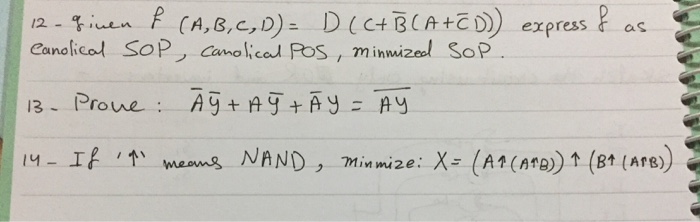 12 - given f (A,B,C,D) = D (C+B̅(A+C̅D)) express f as
Canolical SOP, canolical POS, minmized SOP.
13 - Prove : A̅y̅ + Ay̅ + A̅y = A̅y̅
14 - If '↑' means NAND, minmize: X = (A↑(A↑B)) ↑ (B↑(A↑B))